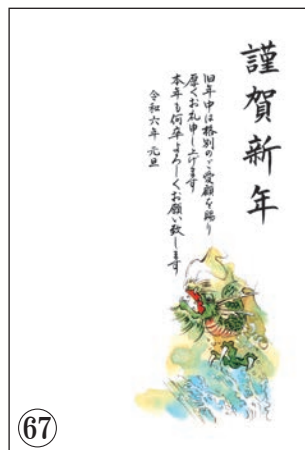 謹賀新年
旧年中は格別のご愛顧を賜り
厚くお礼申し上げます
本年も何卒よろしくお願い致します
令和六年 元旦
67